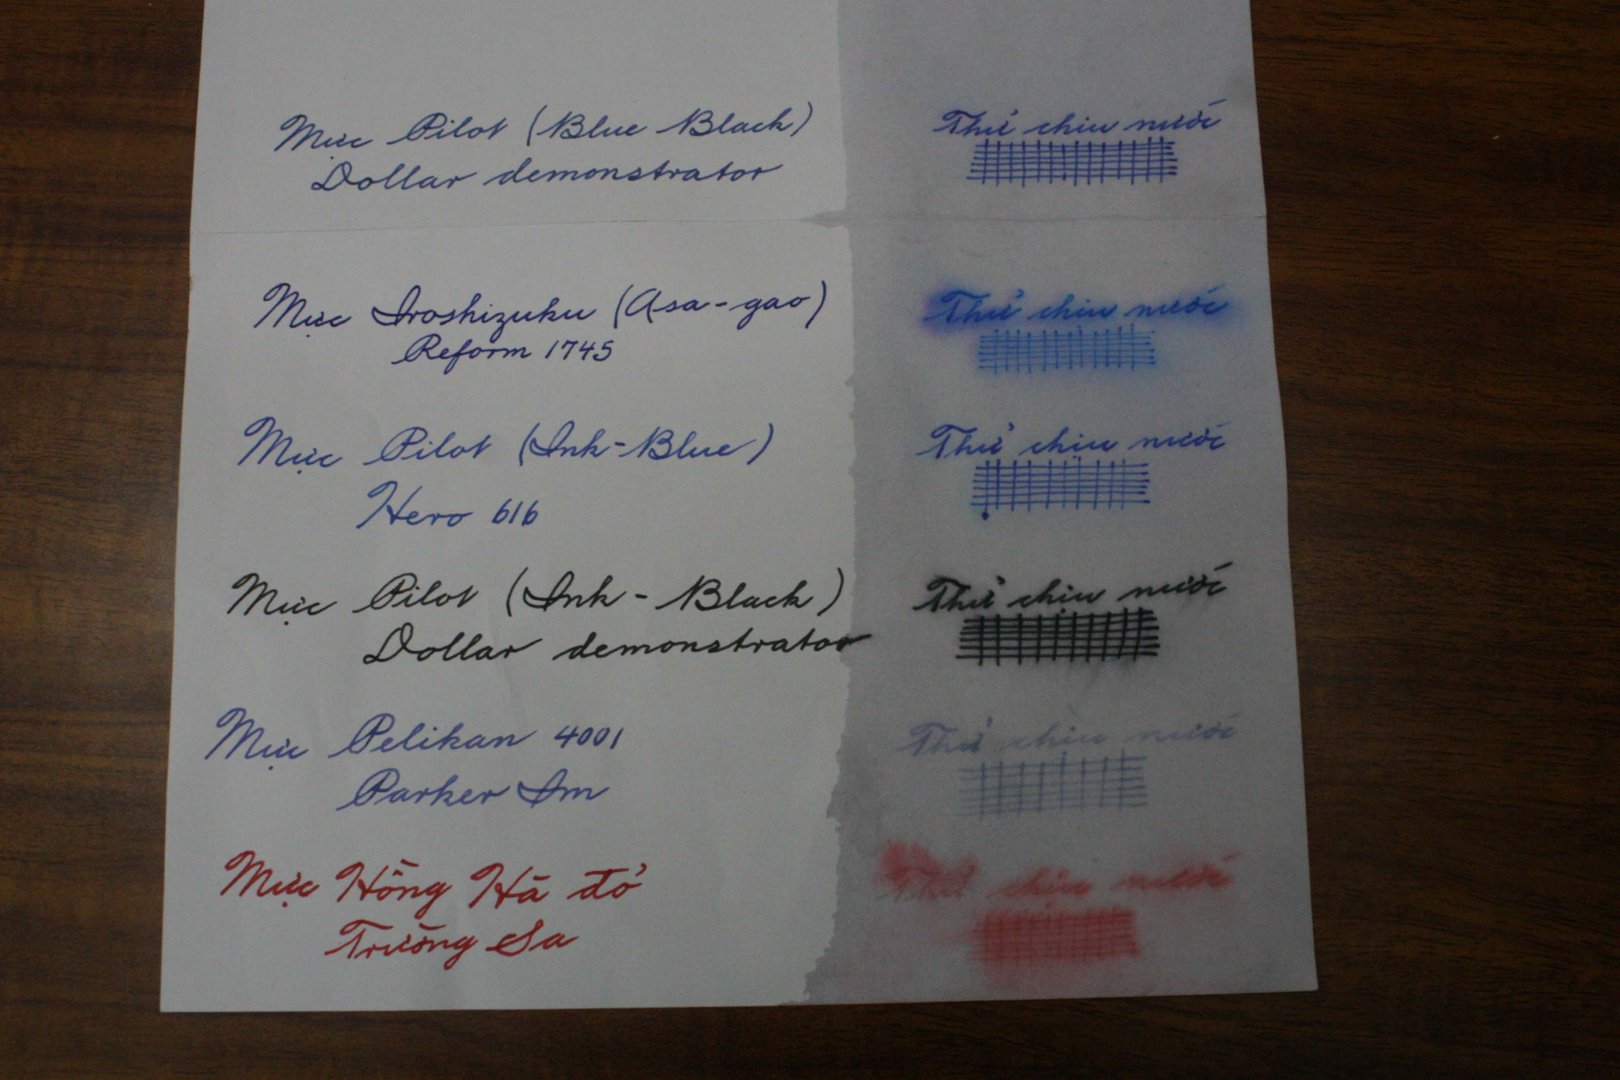 Mực Pilot (Blue Black) Thử chịu nước
Dollar demonstrator
Mực Iroshizuku (Asa-gao) Thử chịu nước
Reform 1745
Mực Pilot (Ink-Blue) Thử chịu nước
Hero 616
Mực Pilot (Ink-Black) Thử chịu nước
Dollar demonstrator
Mực Pelikan 4001 Thử chịu nước
Parker Im
Mực Hồng Hà đỏ Thử chịu nước
Trường Sa